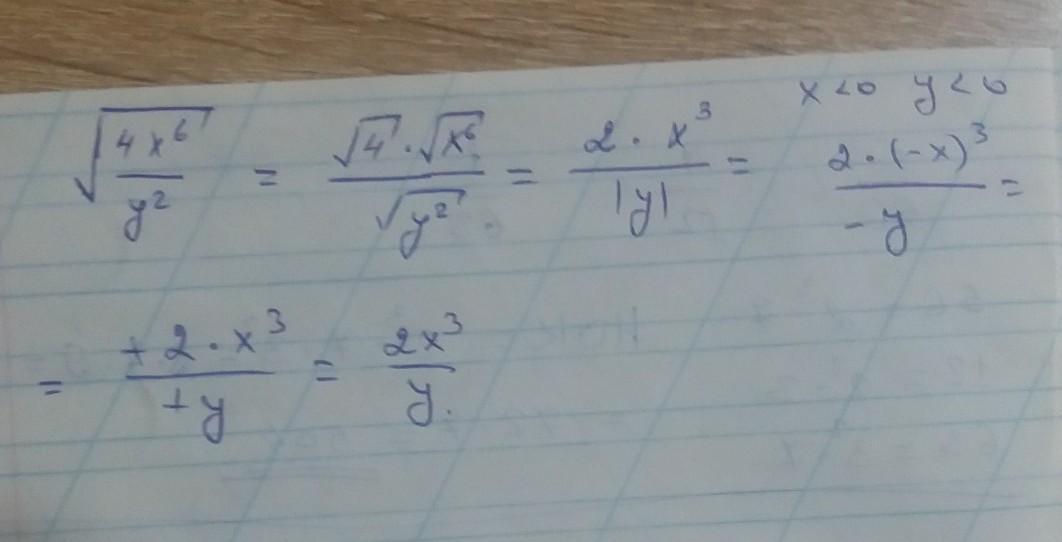 x<0 y<0
√(4x⁶/y²) = (√4·√x⁶)/√y² = (2·x³)/|y| = (2·(-x)³)/(-y) =
= (+2·x³)/(+y) = 2x³/y.